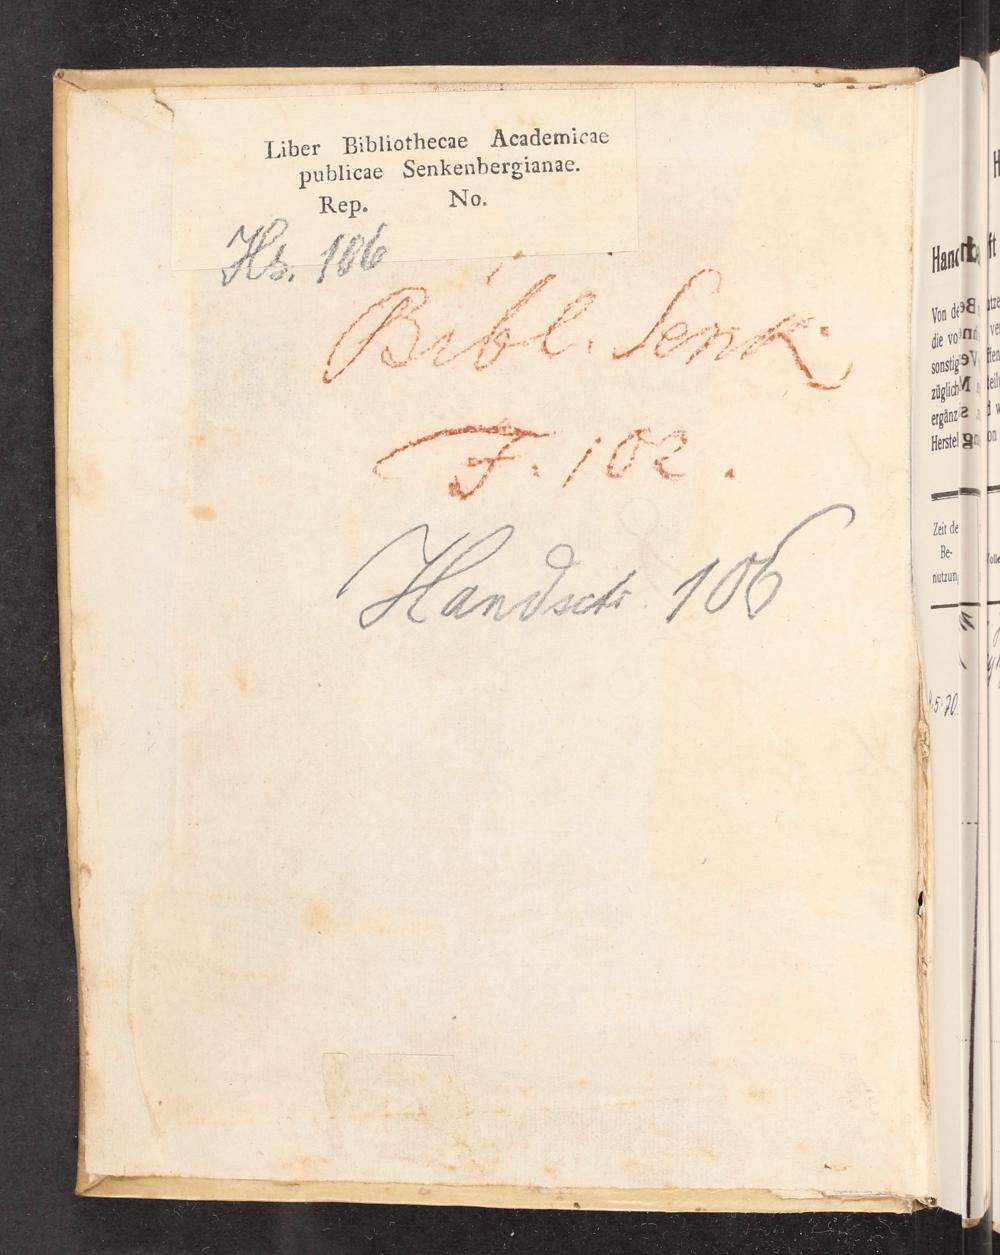 Liber Bibliothecae Academicae
publicae Senkenbergianae.
Rep. No.
Hs. 106
Bibl. Senk.
F. 102.
Handschr. 106
Von de
die vo
sonstig
züglich
ergänz
Herstel
Zeit de
Be-
nutzun